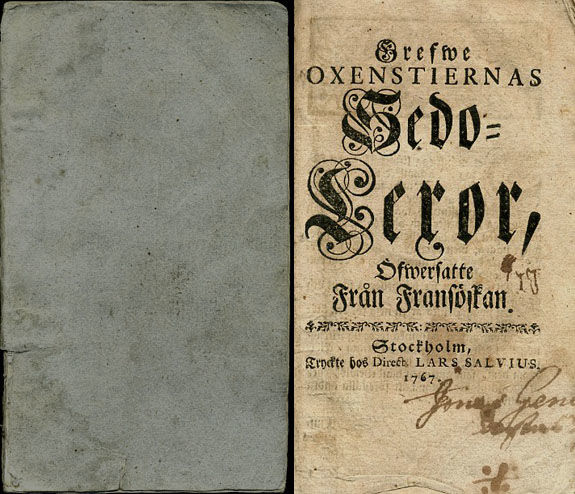 Grefwe
OXENSTIERNAS
Sedo-
Lexor,
Öfwersatte
Från Fransöskan.
Stockholm,
Tryckte hos Direct. LARS SALVIUS.
1767.